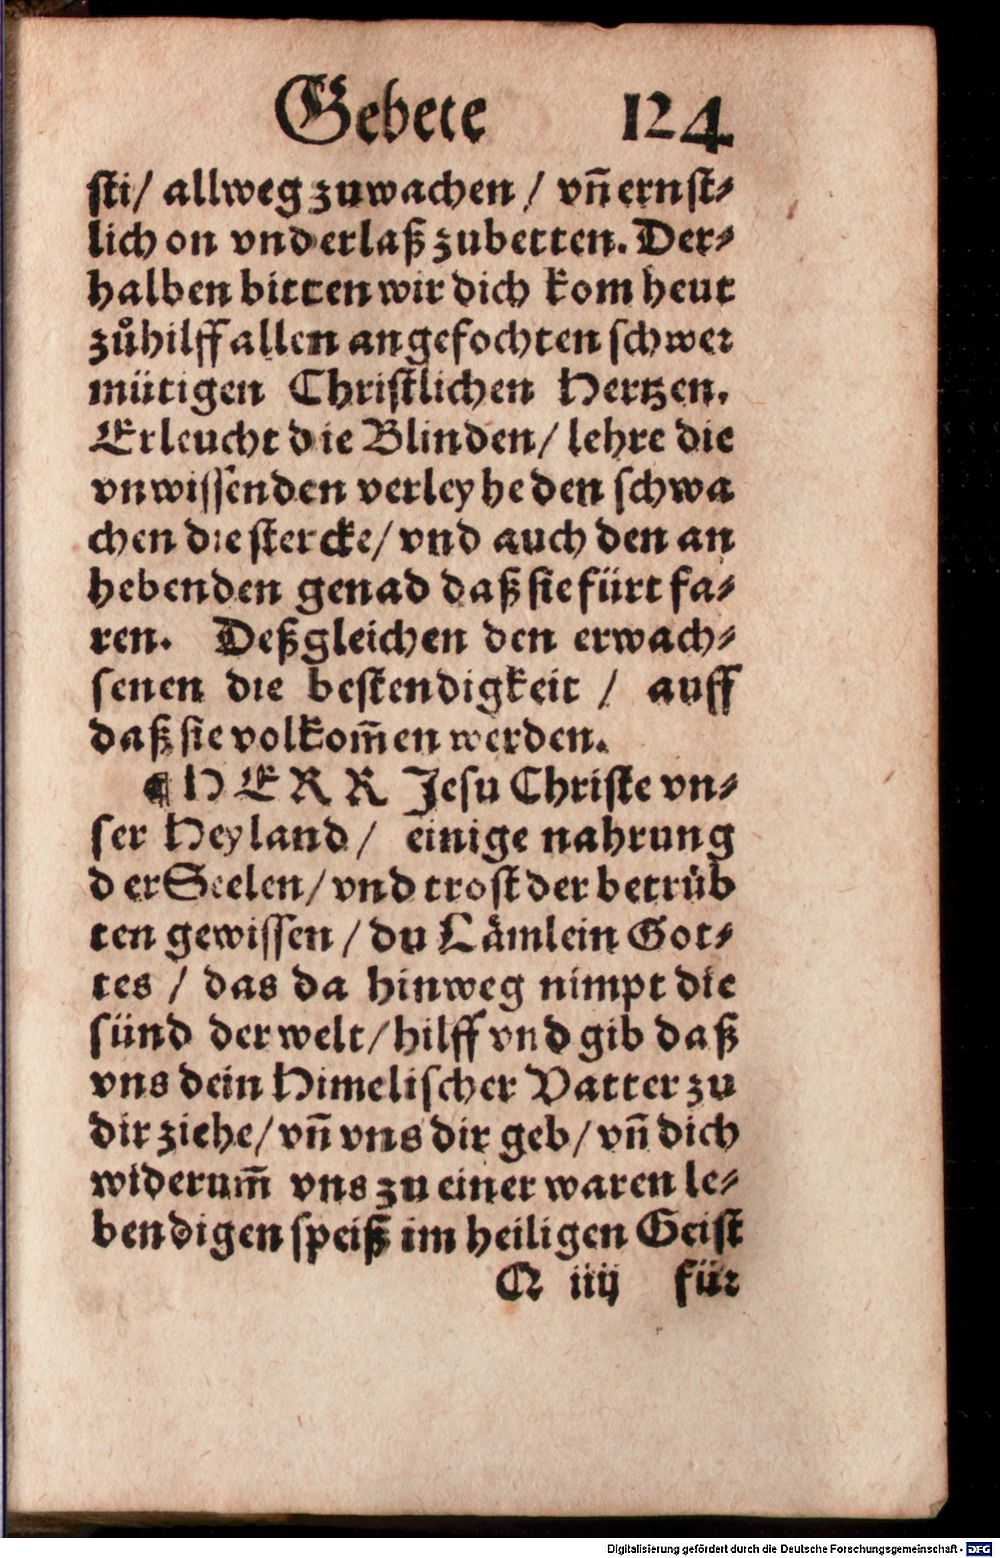 Gebete 124
sti/ allweg zuwachen / vnd̄ ernst⸗
lich on vnderlaß zubetten. Der⸗
halben bitten wir dich kom heut
zůhilff allen angefochten schwer
mütigen Christlichen Hertzen.
Erleucht die Blinden/ lehre die
vnwissenden verleyhe den schwa
chen die stercke/ vnd auch den an
hebenden genad daß sie fürt fa⸗
ren. Deßgleichen den erwach⸗
senen die bestendigkeit / auff
daß sie volkom̄en werden.
¶ HERR Jesu Christe vn⸗
ser Heyland/ einige nahrung
der Seelen/ vnd trost der betrüb
ten gewissen / du Lämlein Got⸗
tes / das da hinweg nimpt die
sünd der welt/ hilff vnd gib daß
vns dein Himelischer Vatter zu
dir ziehe/ vn̄ vns dir geb/ vn̄ dich
widerum̄ vns zu einer waren le⸗
bendigen speiß im heiligen Geist
Q iiij für
Digitalisierung gefördert durch die Deutsche Forschungsgemeinschaft - DFG